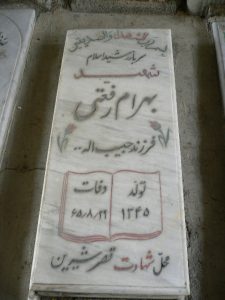 بسم رب الشهداء والصدیقین
سرباز رشید اسلام
شهید
بهرام رفعتی
فرزند حبیب اله..
تولد
۱۳۴۵
وفات
۶۵/۸/۲۹
محل شهادت قصرشیرین